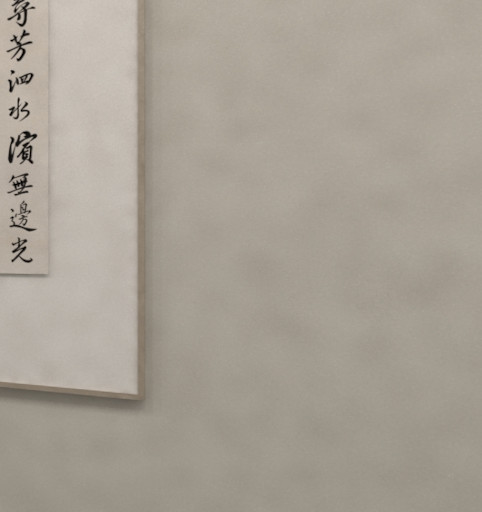 尋芳泗水濱無邊光